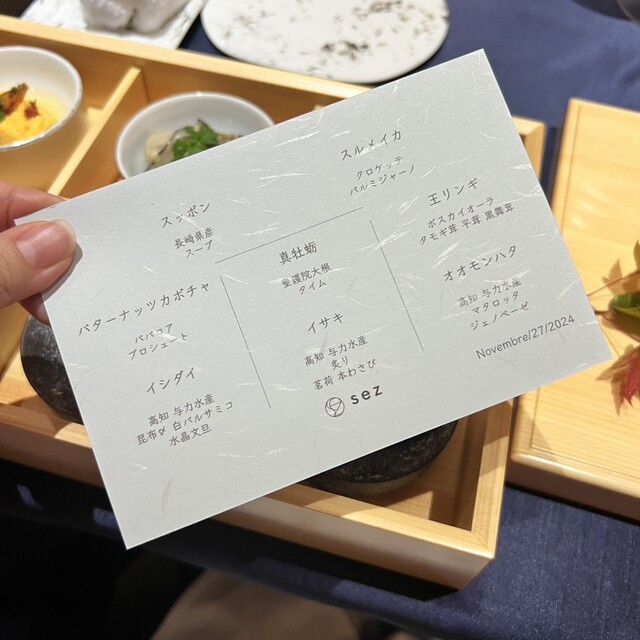 スッポン
長崎県産
スープ
バターナッツカボチャ
パパコア
プロシュート
イシダイ
高知 与力水産
昆布〆 白バルサミコ
水晶文旦
真牡蛎
聖護院大根
タイム
イサキ
高知 与力水産
炙り
茗荷 本わさび
スルメイカ
クロケッテ
パルミジャーノ
王リンギ
ボスカイオーラ
タモギ茸 平茸 黒舞茸
オオモンハタ
高知 与力水産
マタロッタ
ジェノベーゼ
Novembre/27/2024
sez